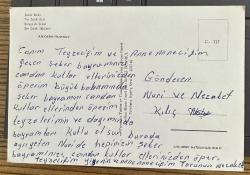 Canım Teyzeciğim ve Anneanneciğim
geçen şeker bayramınızı
candan kutlar ellerinizden
öperim büyük babamında
şeker bayramını candan
kutlar ellerinden öperim
teyzelerimin ve dayımında
bayramları kutlu olsun burada
Nuride hepinizin şeker
bayramlarınızı candan kutlar ellerinizden öper.
teyzeciğim anneanneciğim Torunun Nezaket
C. 117
Gönderen
Nuri ve Nezaket
Kılıç